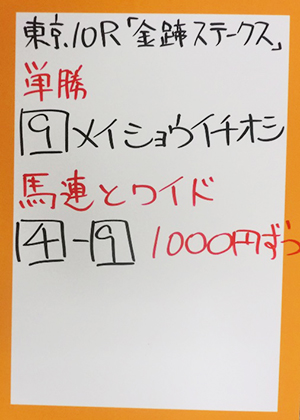 東京10R「金蹄ステークス」
単勝
9 メイショウイチオシ
馬連とワイド
4-9 1000円ずつ